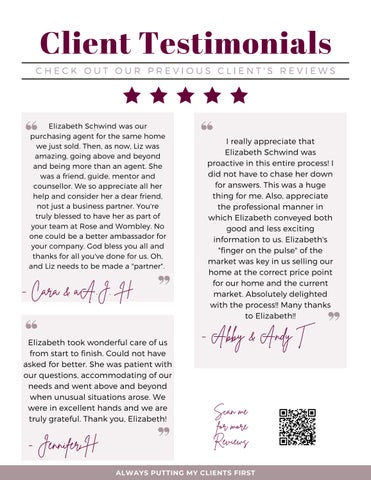 Client Testimonials
CHECK OUT OUR PREVIOUS CLIENT'S REVIEWS
Elizabeth Schwind was our
purchasing agent for the same home
we just sold. Then, as now, Liz was
amazing, going above and beyond
and being more than an agent. She
was a friend, guide, mentor and
counsellor. We so appreciate all her
help and consider her a dear friend,
not just a business partner. You're
truly blessed to have her as part of
your team at Rose and Wombley. No
one could be a better ambassador for
your company. God bless you all and
thanks for all you've done for us. Oh,
and Liz needs to be made a "partner".
- Cara & aA.J. H
Elizabeth took wonderful care of us
from start to finish. Could not have
asked for better. She was patient with
our questions, accommodating of our
needs and went above and beyond
when unusual situations arose. We
were in excellent hands and we are
truly grateful. Thank you, Elizabeth!
- Jennifer,H
I really appreciate that
Elizabeth Schwind was
proactive in this entire process! I
did not have to chase her down
for answers. This was a huge
thing for me. Also, appreciate
the professional manner in
which Elizabeth conveyed both
good and less exciting
information to us. Elizabeth's
"finger on the pulse" of the
market was key in us selling our
home at the correct price point
for our home and the current
market. Absolutely delighted
with the process!! Many thanks
to Elizabeth!!
- Abby & Andy T
Scan me
for more
Reviews
ALWAYS PUTTING MY CLIENTS FIRST